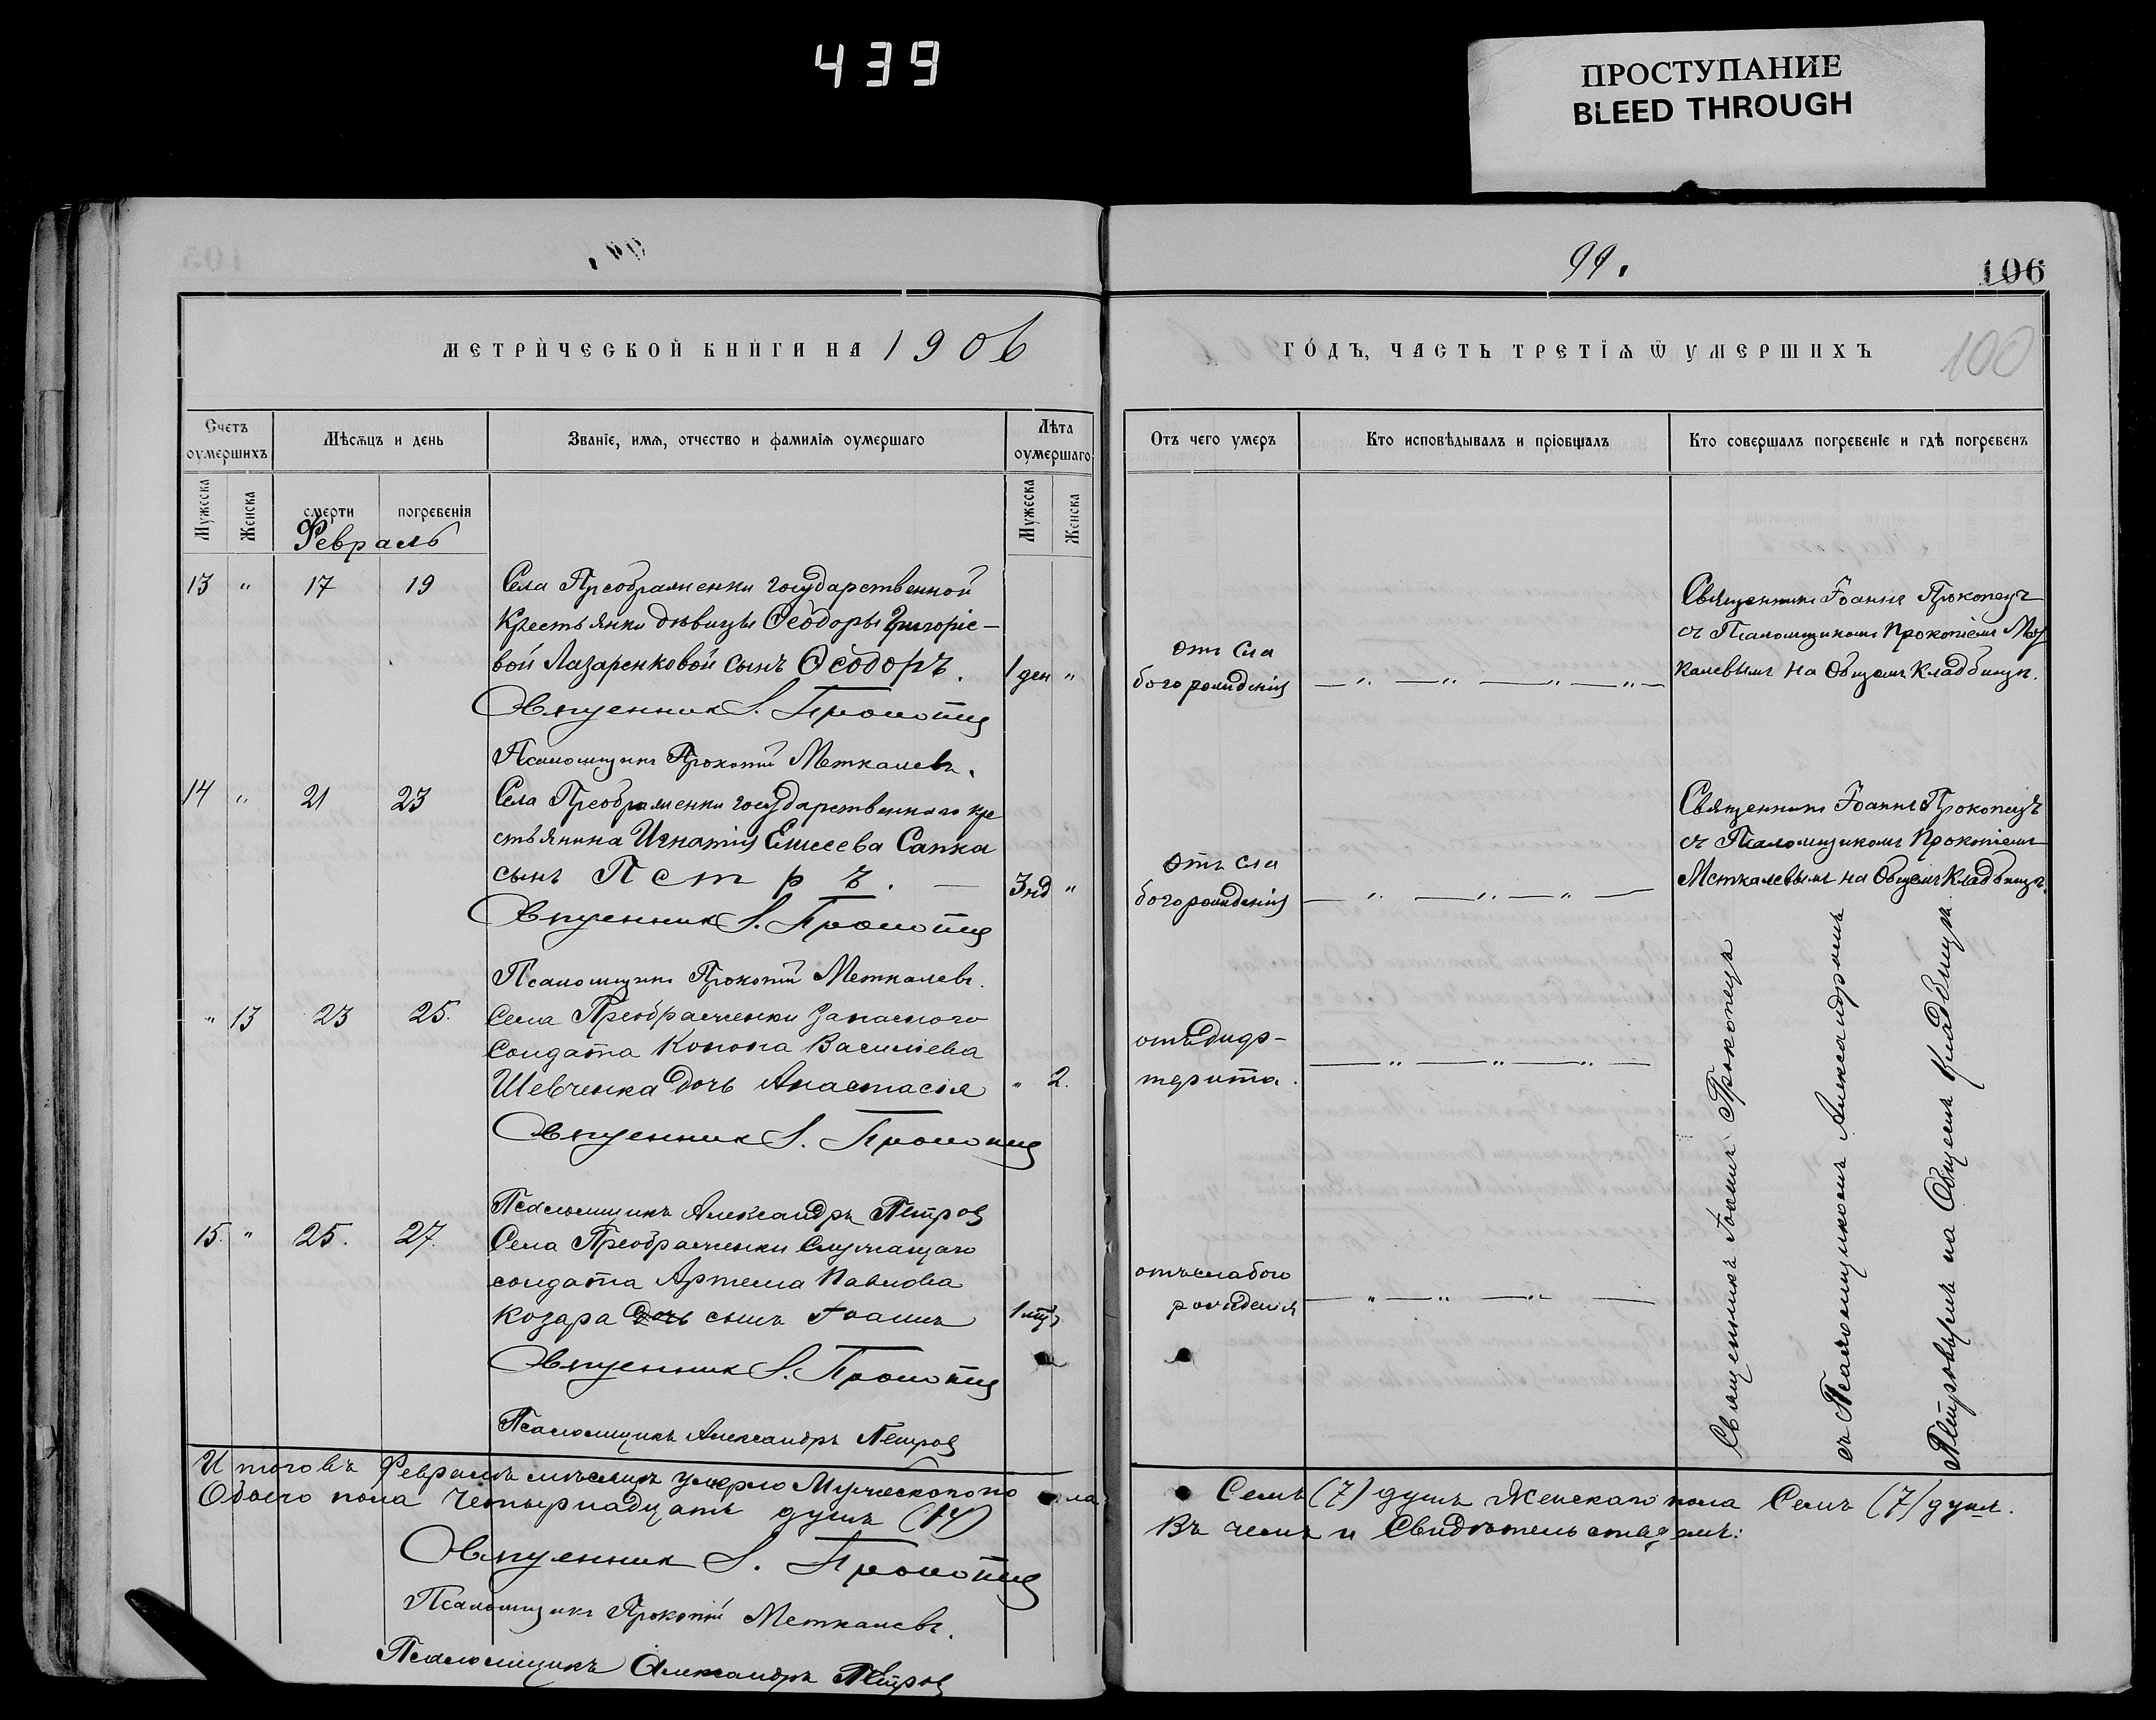 439
ПРОСТУПАНИЕ
BLEED THROUGH
99.
106
100
МЕТРИЧЕСКОЙ КНИГИ НА 1906
ГОДЪ, ЧАСТЬ ТРЕТІѦ Ѿ УМЕРШИХЪ
Счетъ оумершихъ
Мѣсѧцъ и день
Званіе, имѧ, отчество и фамиліѧ оумершаго
Лѣта оумершаго
Отъ чего умеръ
Кто исповѣдывалъ и пріобщалъ
Кто совершалъ погребеніе и гдѣ погребенъ
Мужеска
Женска
смерти
погребенія
Мужеска
Женска
Февраль
13 " 17 19
Села Преображенки государственной
крестьянки дѣвицы Ѳеодоры Григоріе-
вой Лазаренковой сынъ Ѳеодоръ.
1 ден "
отъ сла
бого рожденія
Священникъ Іоаннъ Прокопецъ
съ Псаломщикомъ Прокопіемъ Мет
калевымъ на Общемъ кладбищѣ.
Священникъ І. Прокопец
Псаломщикъ Прокопій Меткалевъ.
14 " 21 23
Села Преображенки государственнаго кре
стьянина Игнатія Елисеева Сапка
сынъ Петръ.
3 нд "
отъ сла
бого рожденія
Священникъ Іоаннъ Прокопецъ
съ Псаломщикомъ Прокопіемъ
Меткалевымъ на Общемъ кладбищѣ.
Священник І. Прокопец
Псаломщикъ Прокопій Меткалевъ.
" 13 23 25.
Села Преображенки запаснаго
солдата Конона Васильева
Шевченка дочь Анастасія
" 2.
отъ дифтерита.
Священник І. Прокопец
Псаломщикъ Александръ Петров
15. " 25. 27.
Села Преображенки служащаго
солдата Артема Павлова
Козара дочь сынъ Іоаннъ
1 мцъ
отъ слабого
рожденія
Священник І. Прокопец
Псаломщикъ Александръ Петров
Священникъ Іоаннъ Прокопецъ
съ Псаломщикомъ Александромъ
Петровымъ на Общемъ кладбищѣ
Итого въ Февралѣ мѣсяцѣ умерло Мужескаго по ла Семь (7) душъ Женскаго пола Семь (7) душъ.
Обоего пола Четырнадцать душъ (14) Въ чемъ и Свидѣтельствуемъ:
Священник І. Прокопец
Псаломщикъ Прокопій Меткалевъ.
Псаломщикъ Александръ Петров